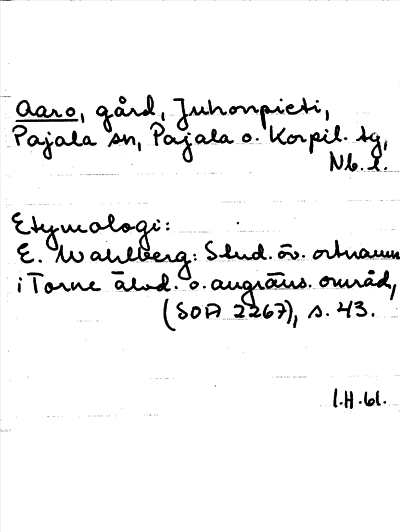 Aaro, gård, Juhonpieti,
Pajala sn, Pajala o. Korpil. tg,
Nb. l.
Etymologi:
E. Wahlberg: Stud. öv. ortnamn
i Torne älvd. o. angräns. områd,
(SOA 2267), s. 43.
I.H. 61.